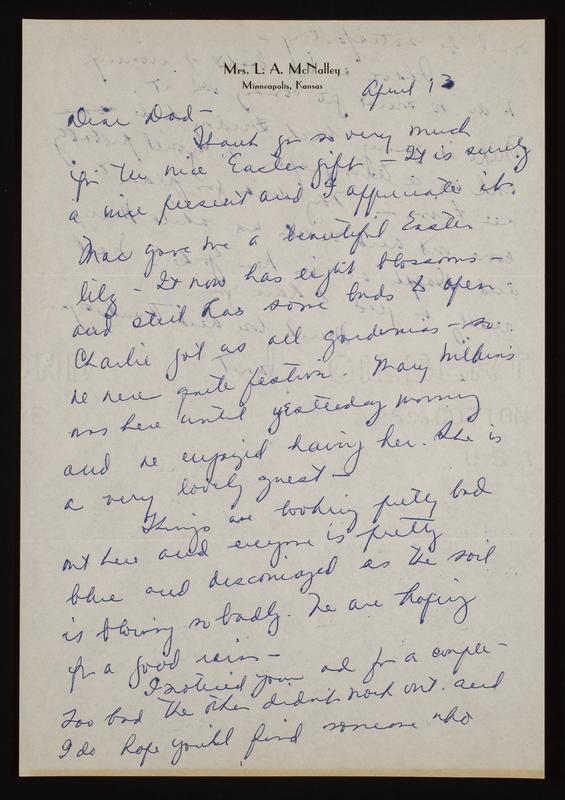 Mrs. L. A. McNalley
Minneapolis, Kansas
April 13
Dear Dad -
Thank you so very much
for the nice Easter gift - It is surely
a nice present and I appreciate it.
Mac gave me a beautiful Easter
lily - It now has eight blossoms -
and still has some buds to open.
Charlie got us all gardenias - so
we were quite festive. Mary Wilkins
was here until yesterday morning
and we enjoyed having her. She is
a very lovely guest -
Things are looking pretty bad
out here and everyone is pretty
blue and discouraged as the soil
is blowing so badly. We are hoping
for a good rain -
I noticed your ad for a couple -
Too bad the other didn't work out. and
I do hope you'll find someone who